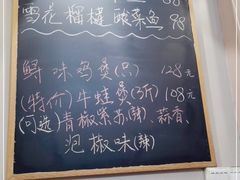 88
雪花榴槤酸菜鱼 98
鲟味鸡煲(只) 128元
(特价)牛蛙煲(3斤)108元
(可选)青椒紫苏(辣)、蒜香、
泡椒味(辣)